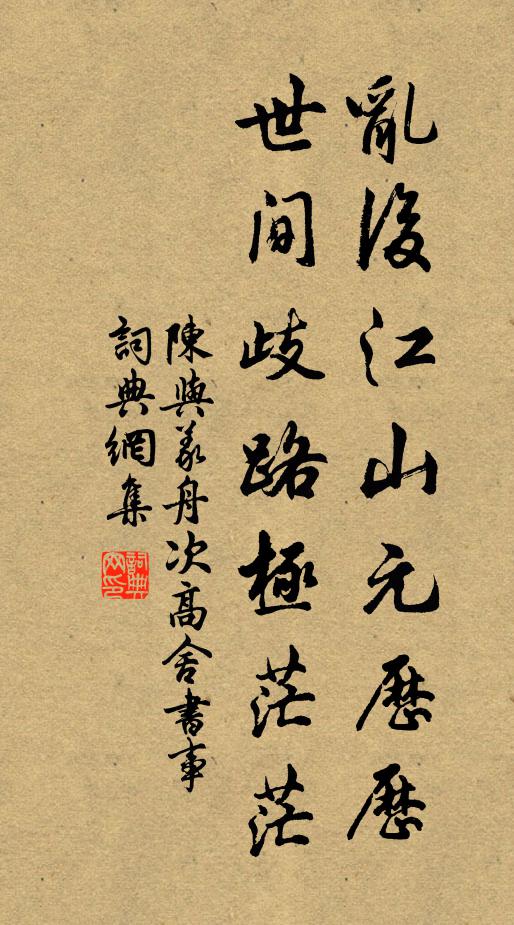 亂後江山元歷歷
世間歧路極茫茫
陳與義舟次高舍書事
詞典網集
詞典網印